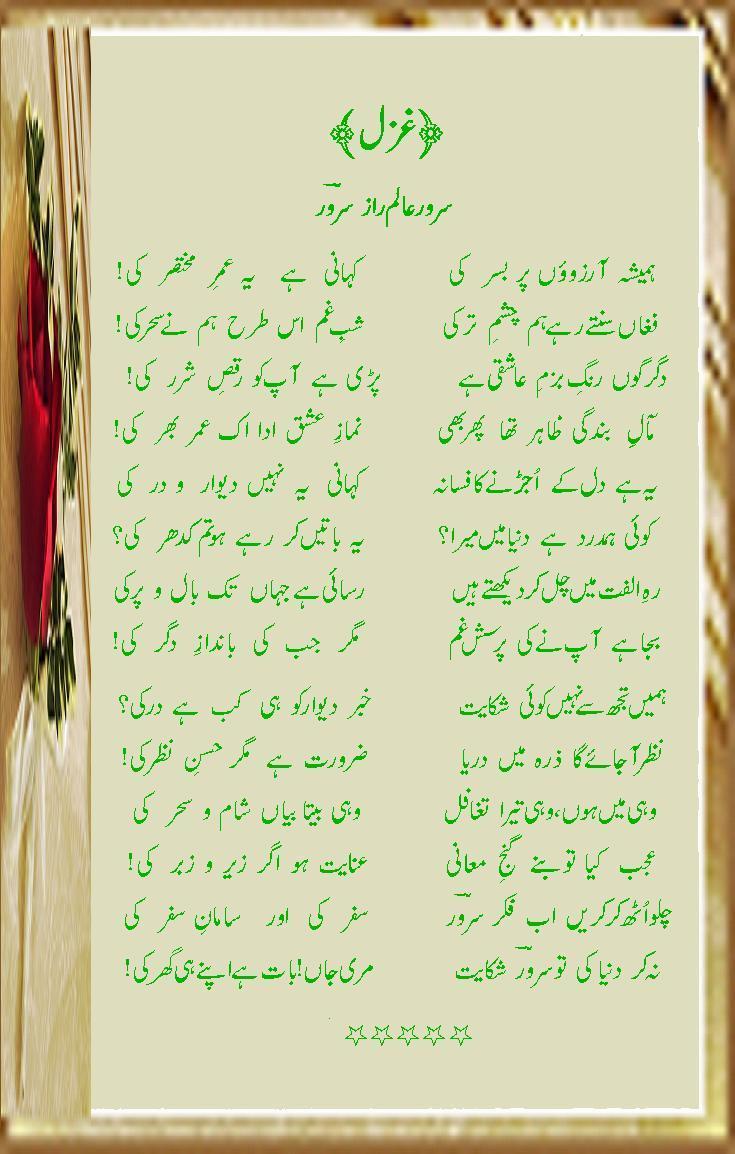 ﴿غزل﴾
سرور عالم راز سرورؔ
ہمیشہ آرزوؤں پر بسر کی کہانی ہے یہ عمرِ مختصر کی!
فغاں سنتے رہے ہم چشمِ تر کی شبِ غم اس طرح ہم نے سحر کی!
دگرگوں رنگِ بزمِ عاشقی ہے پڑی ہے آپ کو رقصِ شرر کی!
مآلِ بندگی ظاہر تھا پھر بھی نمازِ عشق ادا اک عمر بھر کی!
یہ ہے دل کے اُجڑنے کا فسانہ کہانی یہ نہیں دیوار و در کی
کوئی ہمدرد ہے دنیا میں میرا؟ یہ باتیں کر رہے ہو تم کدھر کی؟
رہِ الفت میں چل کر دیکھتے ہیں رسائی ہے جہاں تک بال و پر کی
بجا ہے آپ نے کی پرسشِ غم مگر جب کی باندازِ دگر کی!
ہمیں تجھ سے نہیں کوئی شکایت خبر دیوار کو ہی کب ہے در کی؟
نظر آ جائے گا ذرہ میں دریا ضرورت ہے مگر حسنِ نظر کی!
وہی میں ہوں، وہی تیرا تغافل وہی بیتا بیاں شام و سحر کی
عجب کیا تو بنے گنجِ معانی عنایت ہو اگر زیر و زبر کی!
چلو اُٹھ کر کریں اب فکر سرورؔ سفر کی اور سامانِ سفر کی
نہ کر دنیا کی تو سرورؔ شکایت مری جاں! بات ہے اپنے ہی گھر کی!
☆☆☆☆☆